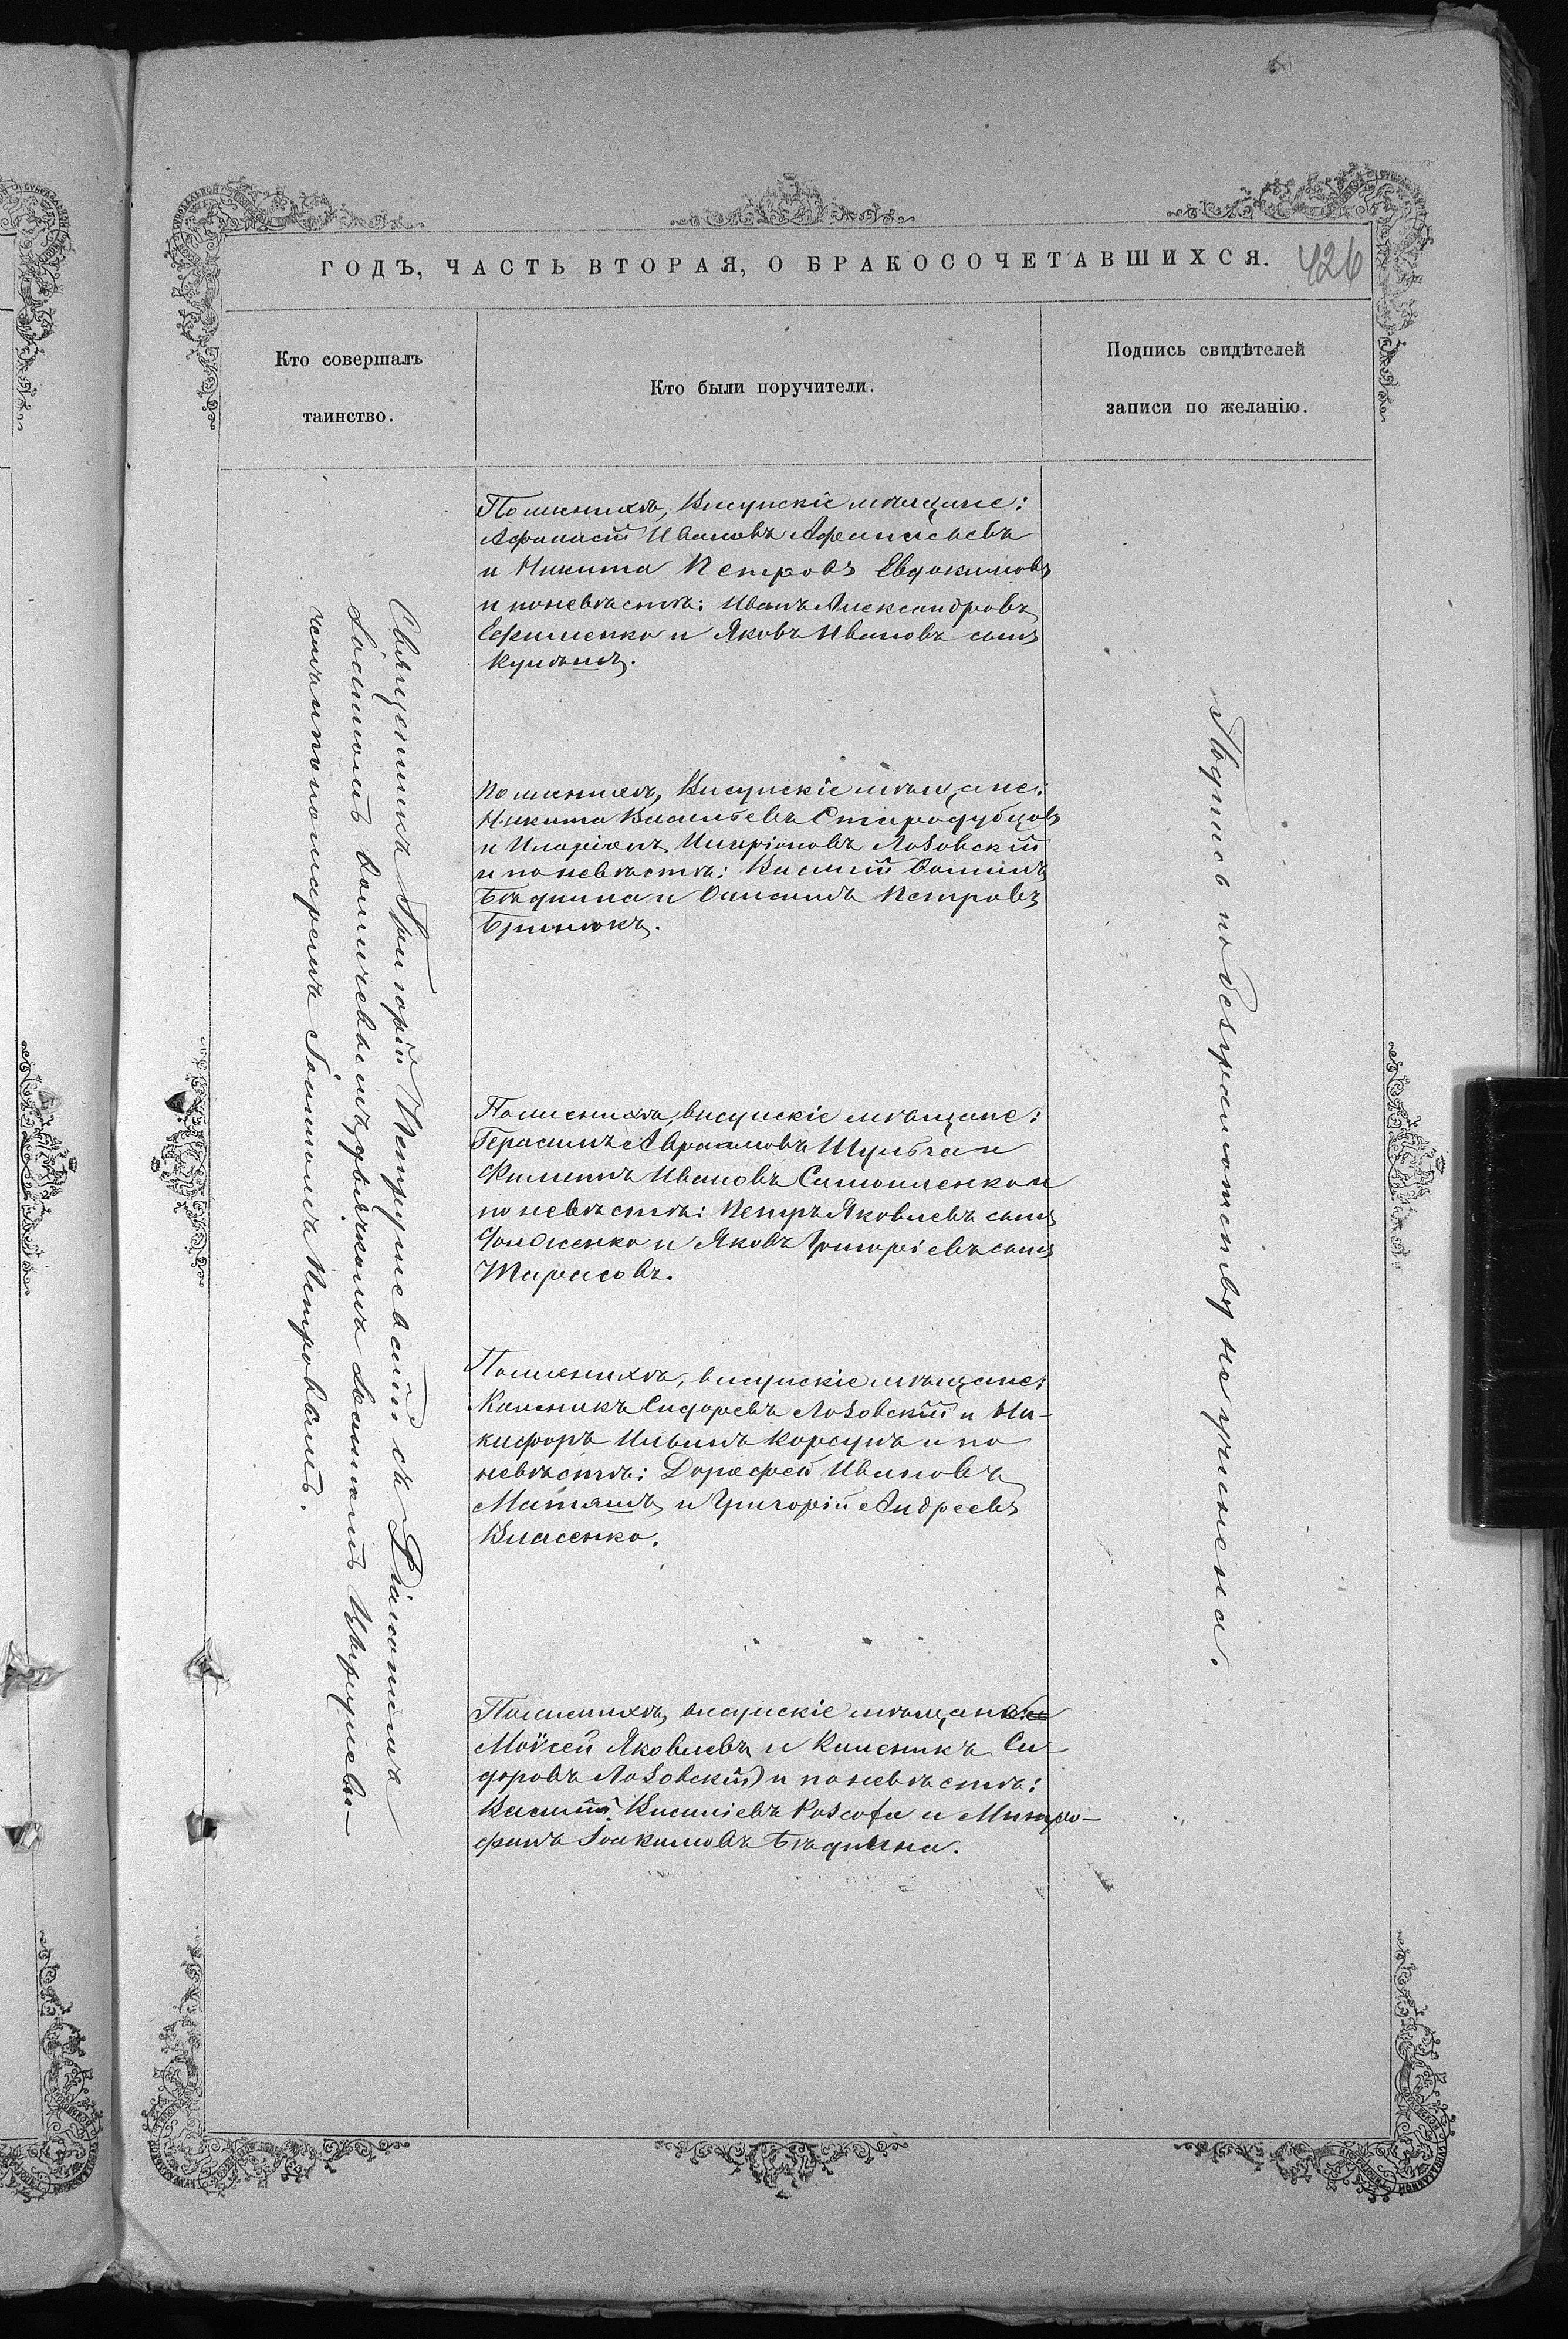 ГОДЪ, ЧАСТЬ ВТОРАЯ, О БРАКОСОЧЕТАВШИХСЯ. 426
Кто совершалъ
таинство.
Кто были поручители.
Подпись свидѣтелей
записи по желанію.
Священникъ Григорій Петрушевскій съ Діакономъ
Іоанномъ
чемъ и пономаремъ Іоанномъ Петровымъ.
По женихѣ, Висунскіе мѣщане:
Афанасій Ивановъ Афанасьевъ
и Никита Петровъ Евдокимовъ
и по невѣстѣ: Иванъ Александровъ
Ефименко и Яковъ Ивановъ сынъ
По женихѣ, Висунскіе мѣщане:
Никита Васильевъ Стародубцовъ
и Иларіонъ Иларіоновъ Лозовскій
и по невѣстѣ: Василій Фоминъ
Бѣдрина и Онисимъ Петровъ
Бринюкъ.
По женихѣ, висунскіе мѣщане:
Герасимъ Аврамовъ Шульга и
Филипъ Ивановъ Симоненко и
по невѣстѣ: Петръ Яковлевъ сынъ
и Яковъ Григоріевъ сынъ
Тарасовъ.
По женихѣ, висунскіе мѣщане:
Каленикъ Сидоровъ Лозовскій и Ни-
кифоръ Ильинъ Корсунъ и по
невѣстѣ: Дорофей Ивановъ
Матяшъ и Григорій Андреевъ
Власенко.
По женихѣ, висунскіе мѣщане
Моѵсей Яковлевъ и Каленикъ Си-
доровъ Лозовскій и по невѣстѣ:
Василій Василіевъ Розсоха и Митро-
фанъ Іоакимовъ Бѣдрина.
Подпись по безграмотству не учинена.